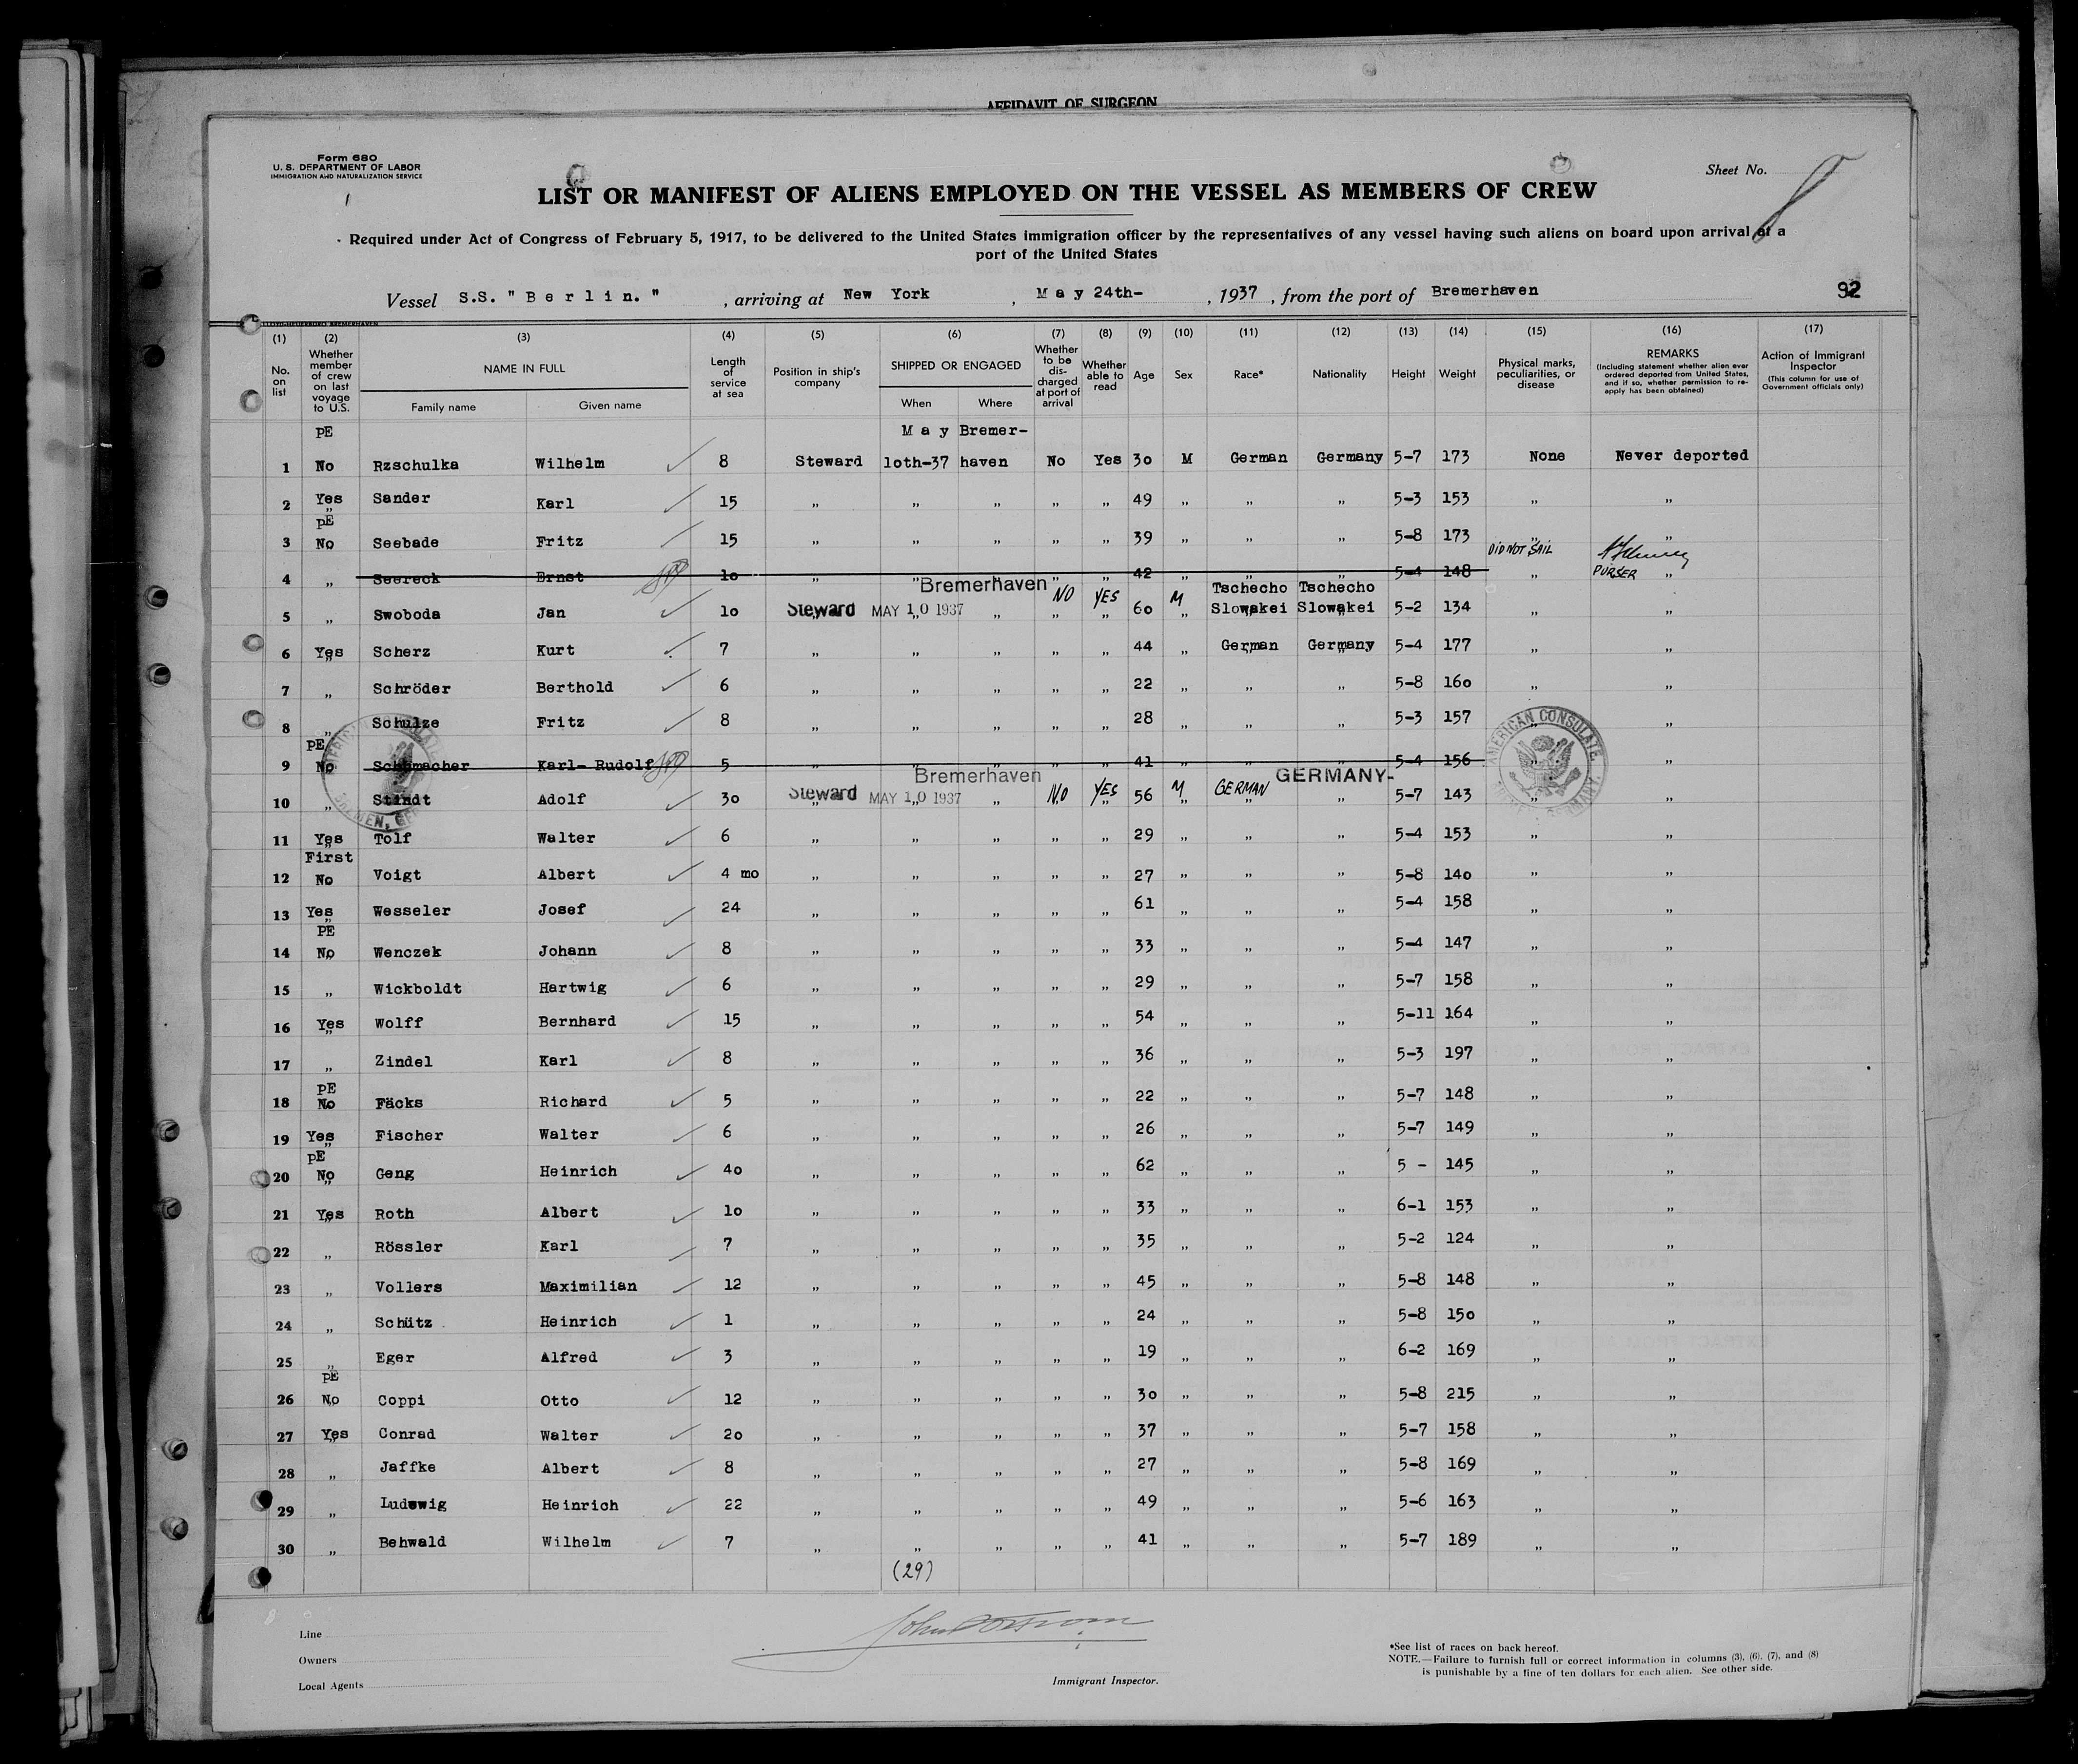 AFFIDAVIT OF SURGEON
Form 680
U. S. DEPARTMENT OF LABOR
IMMIGRATION AND NATURALIZATION SERVICE
Sheet No.
LIST OR MANIFEST OF ALIENS EMPLOYED ON THE VESSEL AS MEMBERS OF CREW
Required under Act of Congress of February 5, 1917, to be delivered to the United States immigration officer by the representatives of any vessel having such aliens on board upon arrival at a
port of the United States
Vessel S.S. "Berlin." , arriving at New York , May 24th- , 1937 , from the port of Bremerhaven 92
(1) (2) (3) (4) (5) (6) (7) (8) (9) (10) (11) (12) (13) (14) (15) (16) (17)
No. on list Whether member of crew on last voyage to U.S. NAME IN FULL Family name Given name Length of service at sea Position in ship's company SHIPPED OR ENGAGED When Where Whether to be discharged at port of arrival Whether able to read Age Sex Race* Nationality Height Weight Physical marks, peculiarities, or disease REMARKS (Including statement whether alien ever ordered deported from United States, and if so, whether permission to re-apply has been obtained) Action of Immigrant Inspector (This column for use of Government officials only)
PE May Bremer-
1 No Rzschulka Wilhelm 8 Steward 1oth-37 haven No Yes 3o M German Germany 5-7 173 None Never deported
2 Yes Sander Karl 15 " " " " " 49 " " " 5-3 153 " "
PE
3 No Seebade Fritz 15 " " " " " 39 " " " 5-8 173 " "
DID NOT SAIL
4 " Seereck Ernst 1o " " " " " 42 " " " 5-4 148 " PURSER "
Bremerhaven NO YES M Tschecho Tschecho
5 " Swoboda Jan 1o Steward MAY 10 1937 " " " 6o " Slowakei Slowakei 5-2 134 " "
6 Yes Scherz Kurt 7 " " " " " 44 " German Germany 5-4 177 " "
7 " Schröder Berthold 6 " " " " " 22 " " " 5-8 16o " "
8 " Schulze Fritz 8 " " " " " 28 " " " 5-3 157 " "
AMERICAN CONSULATE
PE
9 No Schumacher Karl-Rudolf 5 " " " " " 41 " " " 5-4 156 " "
Bremerhaven GERMANY-
10 " Stindt Adolf 3o Steward MAY 10 1937 " NO YES 56 M GERMAN " 5-7 143 " "
11 Yes Tolf Walter 6 " " " " " 29 " " " 5-4 153 " "
First
12 No Voigt Albert 4 mo " " " " " 27 " " " 5-8 14o " "
13 Yes Wesseler Josef 24 " " " " " 61 " " " 5-4 158 " "
PE
14 No Wenczek Johann 8 " " " " " 33 " " " 5-4 147 " "
15 " Wickboldt Hartwig 6 " " " " " 29 " " " 5-7 158 " "
16 Yes Wolff Bernhard 15 " " " " " 54 " " " 5-11 164 " "
17 " Zindel Karl 8 " " " " " 36 " " " 5-3 197 " "
PE
18 No Fäcks Richard 5 " " " " " 22 " " " 5-7 148 " "
19 Yes Fischer Walter 6 " " " " " 26 " " " 5-7 149 " "
PE
20 No Geng Heinrich 4o " " " " " 62 " " " 5 - 145 " "
21 Yes Roth Albert 1o " " " " " 33 " " " 6-1 153 " "
22 " Rössler Karl 7 " " " " " 35 " " " 5-2 124 " "
23 " Vollers Maximilian 12 " " " " " 45 " " " 5-8 148 " "
24 " Schütz Heinrich 1 " " " " " 24 " " " 5-8 15o " "
25 " Eger Alfred 3 " " " " " 19 " " " 6-2 169 " "
PE
26 No Coppi Otto 12 " " " " " 3o " " " 5-8 215 " "
27 Yes Conrad Walter 2o " " " " " 37 " " " 5-7 158 " "
28 " Jaffke Albert 8 " " " " " 27 " " " 5-8 169 " "
29 " Ludewig Heinrich 22 " " " " " 49 " " " 5-6 163 " "
30 " Behwald Wilhelm 7 " " " " " 41 " " " 5-7 189 " "
(29)
Line
Owners
Local Agents
Immigrant Inspector.
*See list of races on back hereof.
NOTE.—Failure to furnish full or correct information in columns (3), (6), (7), and (8)
is punishable by a fine of ten dollars for each alien. See other side.